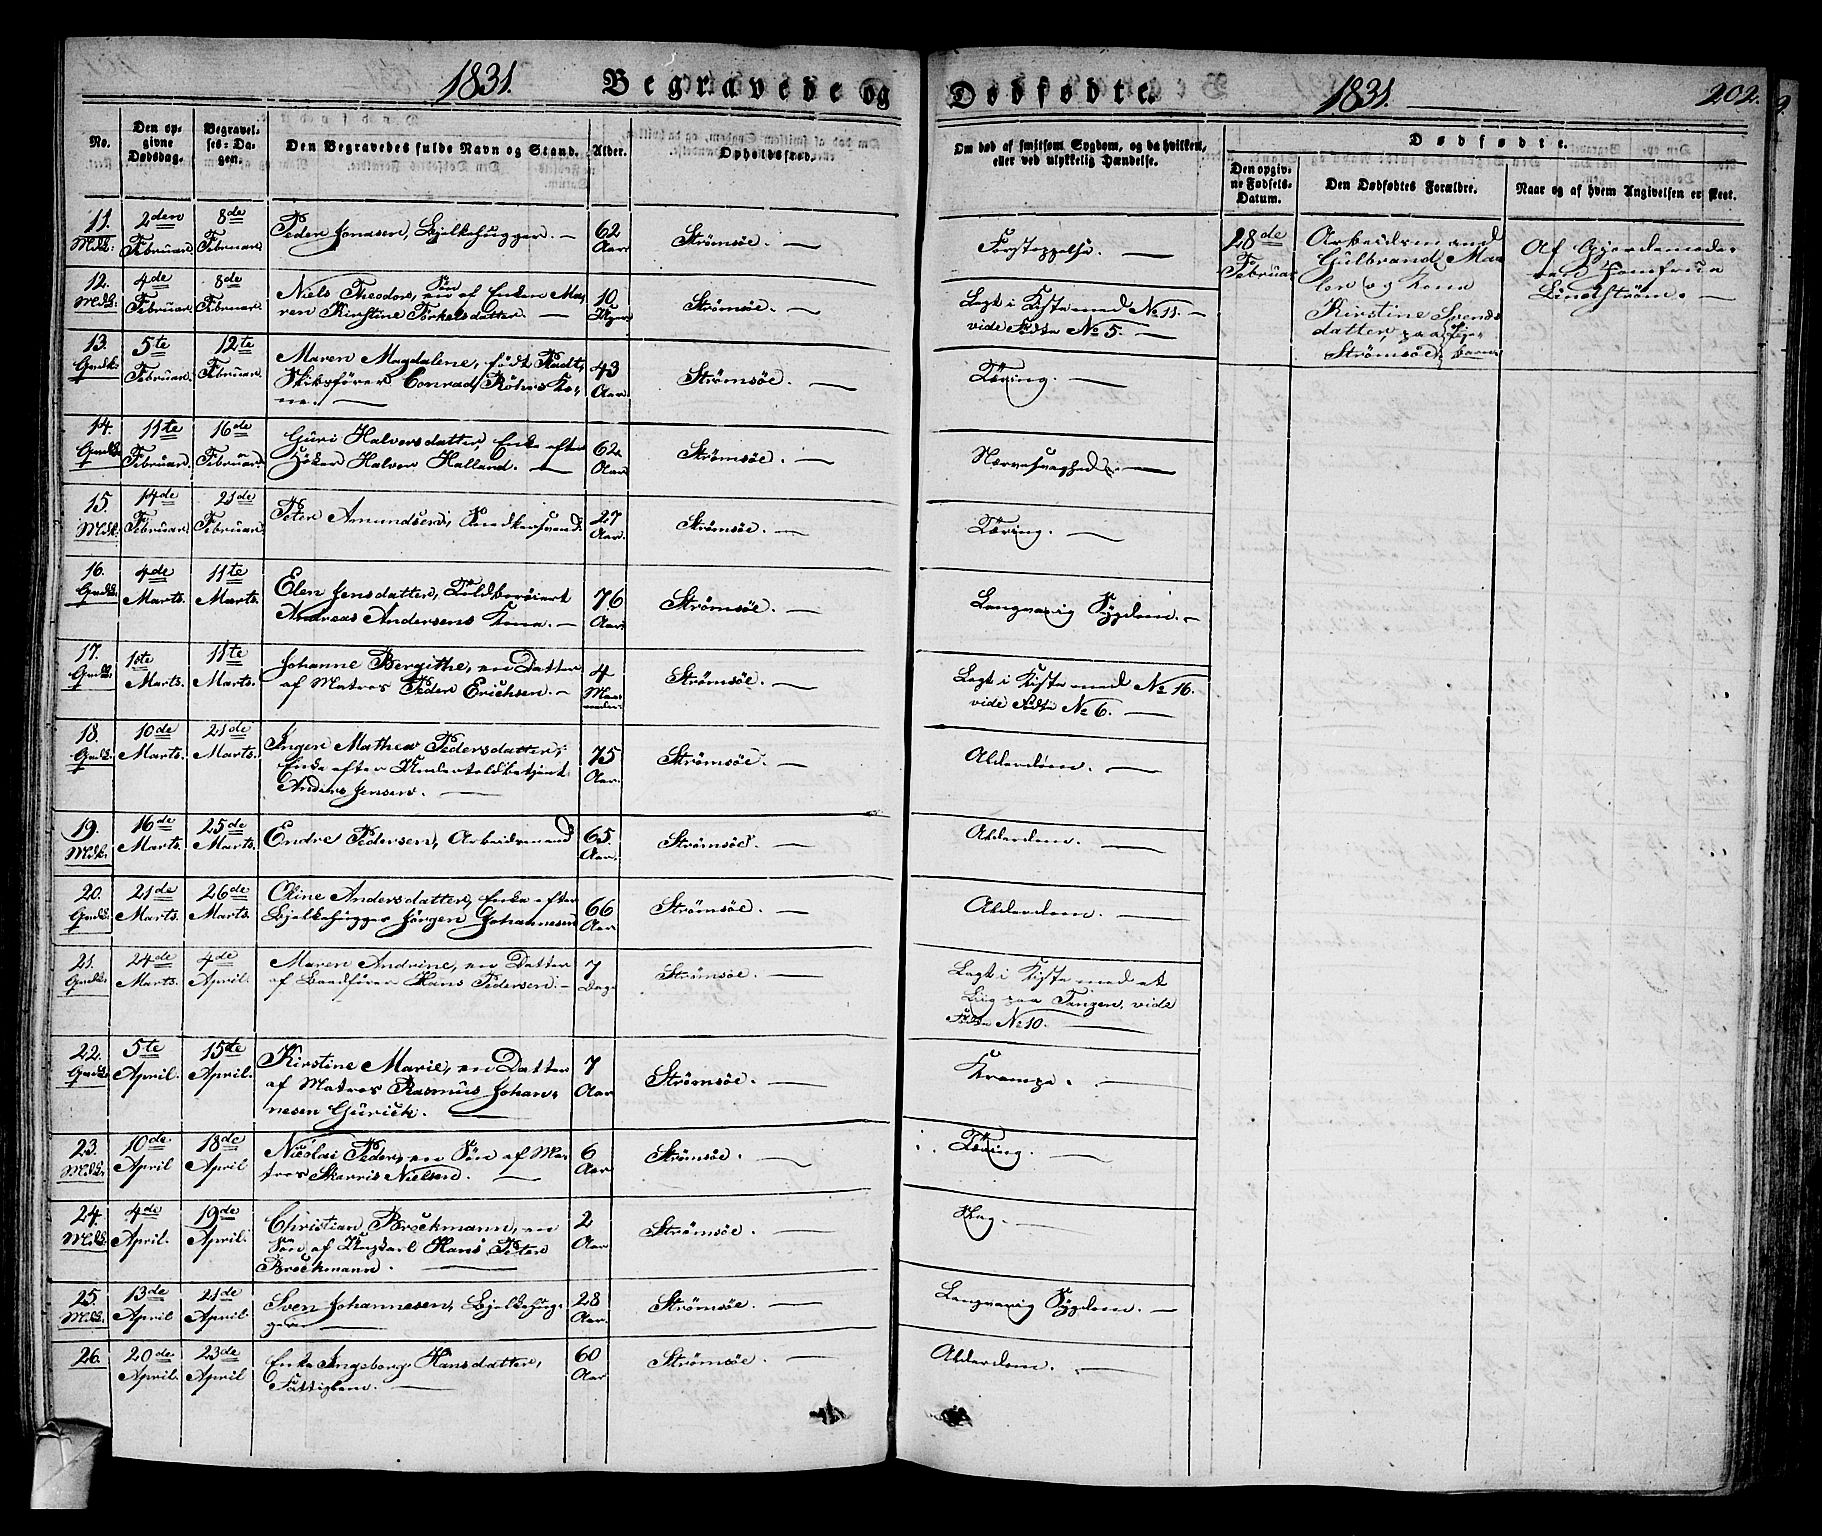 1831. Begravede og Dødfødte. 1831. 202.
No. Den opgivne Dødsdag. Begravelses-Dagen. Den Begravedes fulde Navn og Stand. Alder. Opholdssted. Om død af smitsom Sygdom, og da hvilken, eller ved ulykkelig Hændelse.
Dødfødte.
Den opgivne Fødsels-Datum. Den Dødfødtes Forældre. Naar og af hvem Angivelsen er skeet.
11. Mdk: 2den Februar. 8de Februar. Peder Jonasen, Bjelkehugger. — 62 Aar. Strømsøe. — Forstoppelse. —
12. Mdk: 4de Februar. 8de Februar. Niels Theodor, en Søn af Enken Maren Kirstine Torkelsdatter. — 10 Uger. Strømsøe. — Lagt i Kiste med No 11. — vide Fødte No 5. —
13. Qvdk: 5te Februar. 12te Februar. Maren Magdalene, født Radt, Skibsfører Conrad Röhrs Kone. — 43 Aar. Strømsøe. — Tæring. —
14. Qvdk: 11te Februar. 16de Februar. Guri Halvorsdatter, Enke efter Høker Halvor Halland. — 62 Aar. Strømsøe. — Nervesvaghed. —
15. Mdk: 14de Februar. 21de Februar. Peter Amundsen, Snedkersvend. 27 Aar. Strømsøe. — Tæring. —
16. Qvdk: 4de Marts. 11te Marts. Elen Jensdatter, Toldberøiert Andreas Andersens Kone. — 76 Aar. Strømsøe. — Langvarig Sygdom. —
17. Qvdk: 1ste Marts. 11te Marts. Johanne Bergithe, en Datter af Matros Peder Erichsen. — 4 Maaneder. Strømsøe. — Lagt i Kiste med No 16. vide Fødte No 6. —
18. Qvdk: 10de Marts. 21de Marts. Inger Mathea Pedersdatter, Enke efter Undertoldbetjent Anders Jensen. — 75 Aar. Strømsøe. — Alderdom. —
19. Mdk: 16de Marts. 25de Marts. Endre Pedersen, Arbeidsmand 65 Aar. Strømsøe. — Alderdom. —
20. Qvdk: 21de Marts. 26de Marts. Oline Andersdatter, Enke efter Bjelkehugger Jörgen Johannesen 66 Aar. Strømsøe. — Alderdom. —
21. Qvdk: 24de Marts. 4de April. Maren Andrine, en Datter af Baadfører Hans Pedersen. — 7 Dage Strømsøe. — Lagt i Kiste med et Liig paa Tangen, vide Fødte No 10. —
22. Qvdk: 5te April. 15de April. Kirstine Marie, en Datter af Matros Rasmus Johannesen Gurich. — 7 Aar Strømsøe. — Krampe. —
23. Mdk: 10de April 18de April Nicolai Peder, en Søn af Matros Skarvis Nielsen. — 6 Aar Strømsøe. — Tæring. —
24. Mdk: 4de April. 19de April. Christian Brockmann, en Søn af Hans Peter Brockmann. — 2 Aar Strømsøe. — Slag. —
25. Mdk: 13de April 21de April Sven Johannesen, Bjelkehugger — 28 Aar. Strømsøe. — Langvarig Sygdom. —
26. 20de April. 23de April Enke Ingeborg Hansdatter, Fattiglem. — 60 Aar Strømsøe. — Alderdom. —
28de Februar Arbeidsmand Gulbrand og Kone Kirstine Svensdatter, paa Strømsøe. Af Gjordemoder Jomfrue Lindstrøm. —